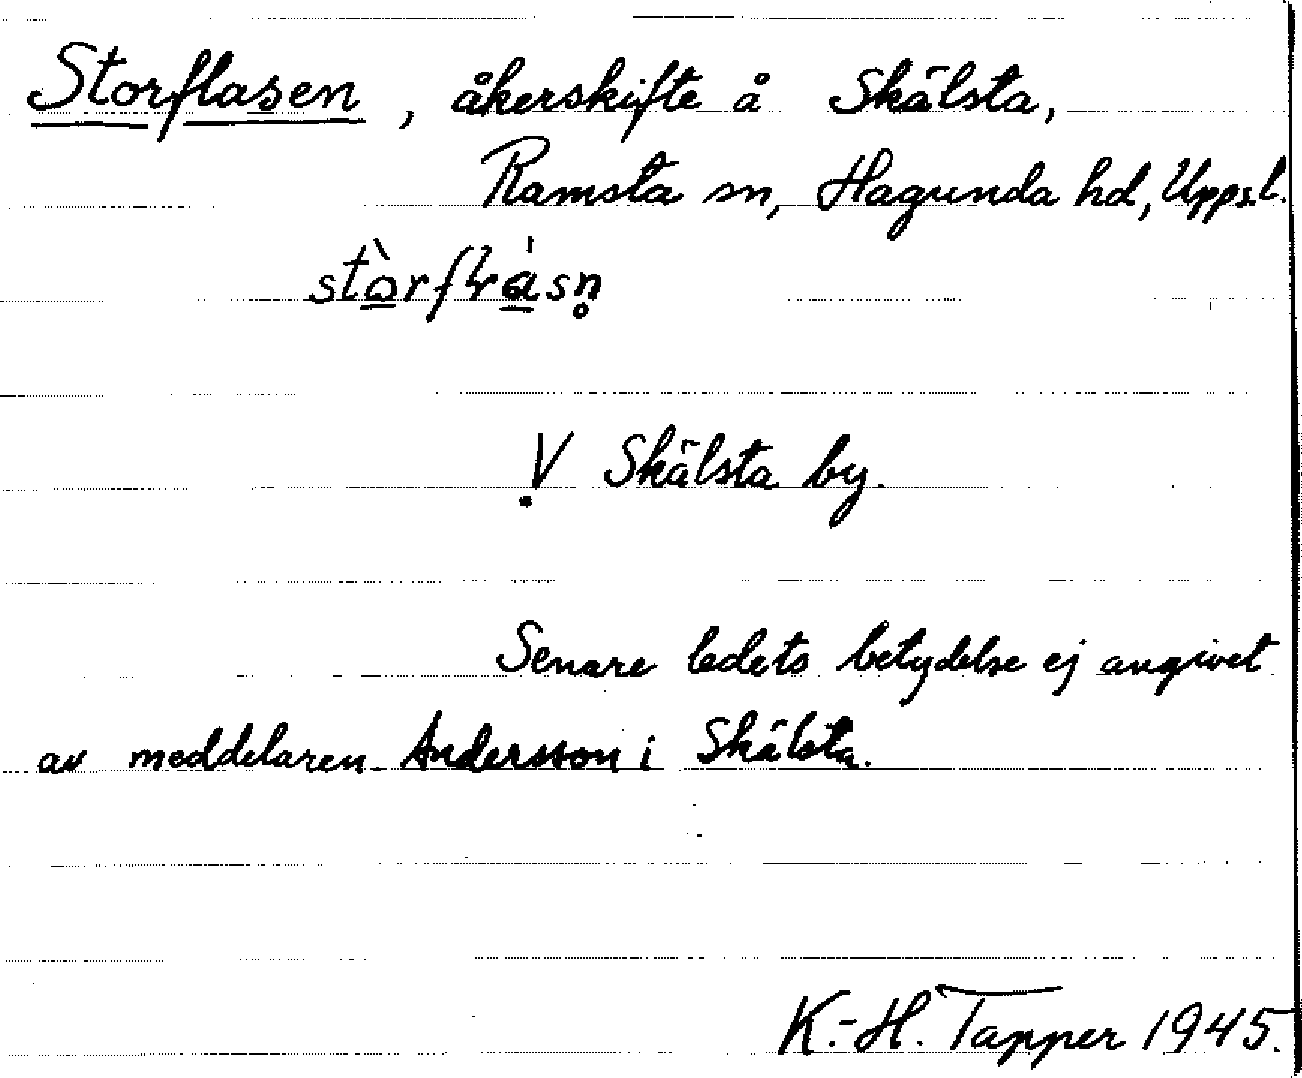 Storflasen, åkerskifte å Skälsta,
Ramsta sn, Hagunda hd, Upps.l.
V Skälsta by.
Senare ledets betydelse ej angivet
av meddelaren Andersson i Skälsta.
K.-H. Tapper 1945.